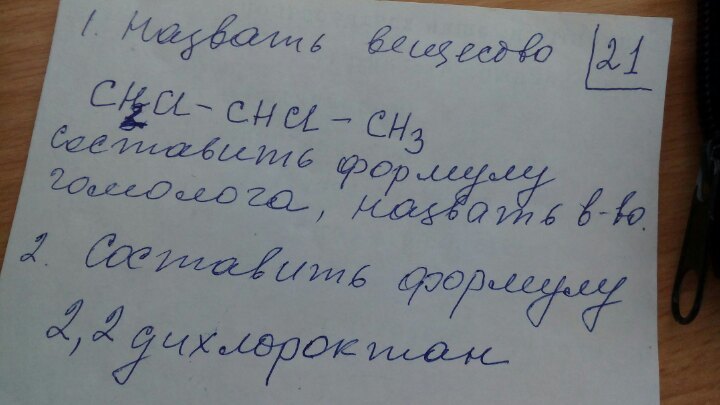 1. Назвать вещесво 21
CH2Cl - CHCl - CH3
составить формулу
гомолога, назвать в-во.
2. Составить формулу
2,2 дихлороктан